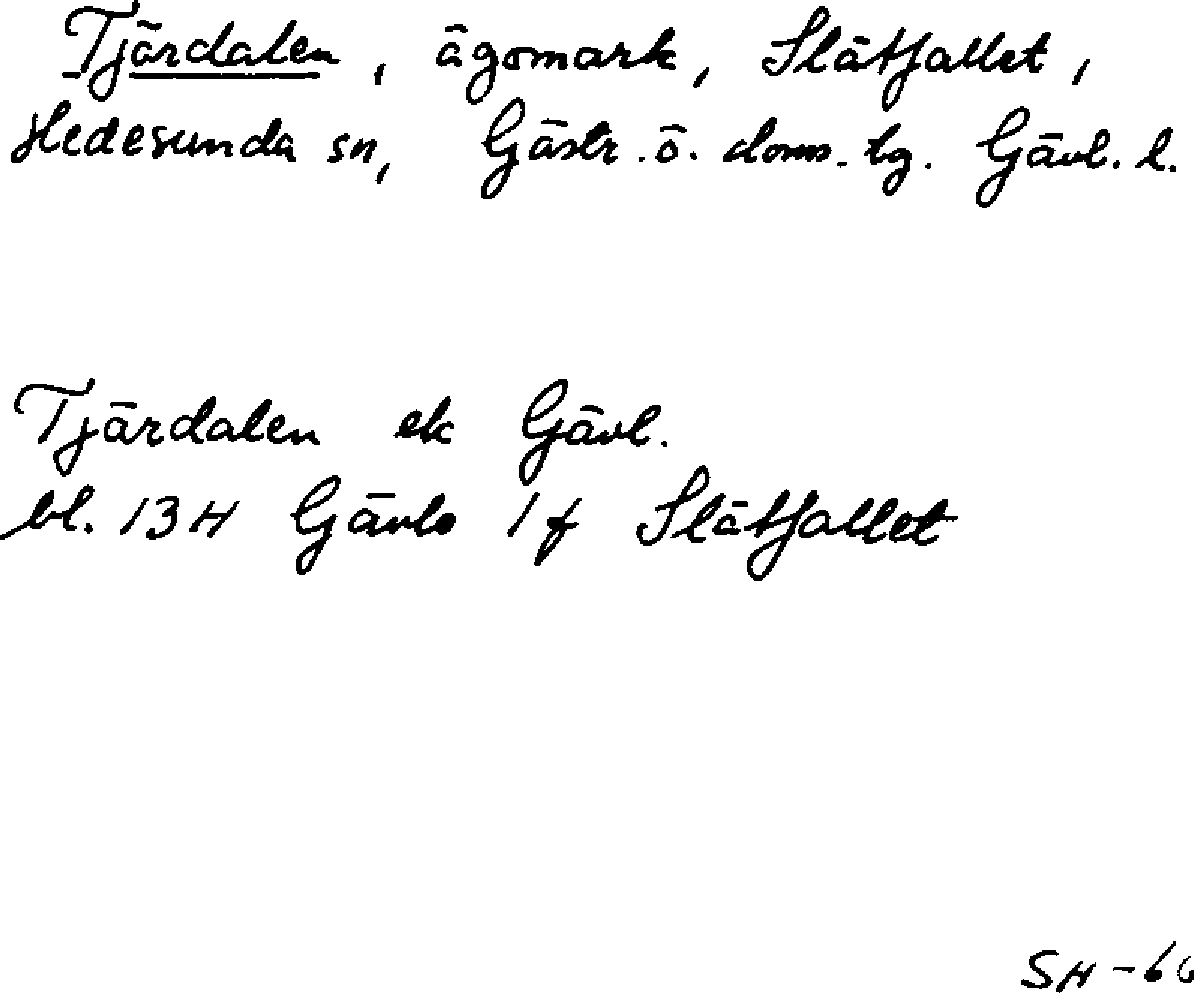 Tjärdalen, ägomark, Slåtfallet,
Hedesunda sn, Gästr. ö. doms. tg. Gävl. l.
Tjärdalen ek Gävl.
bl. 13H Gävle 1f Slåtfallet
SH-66